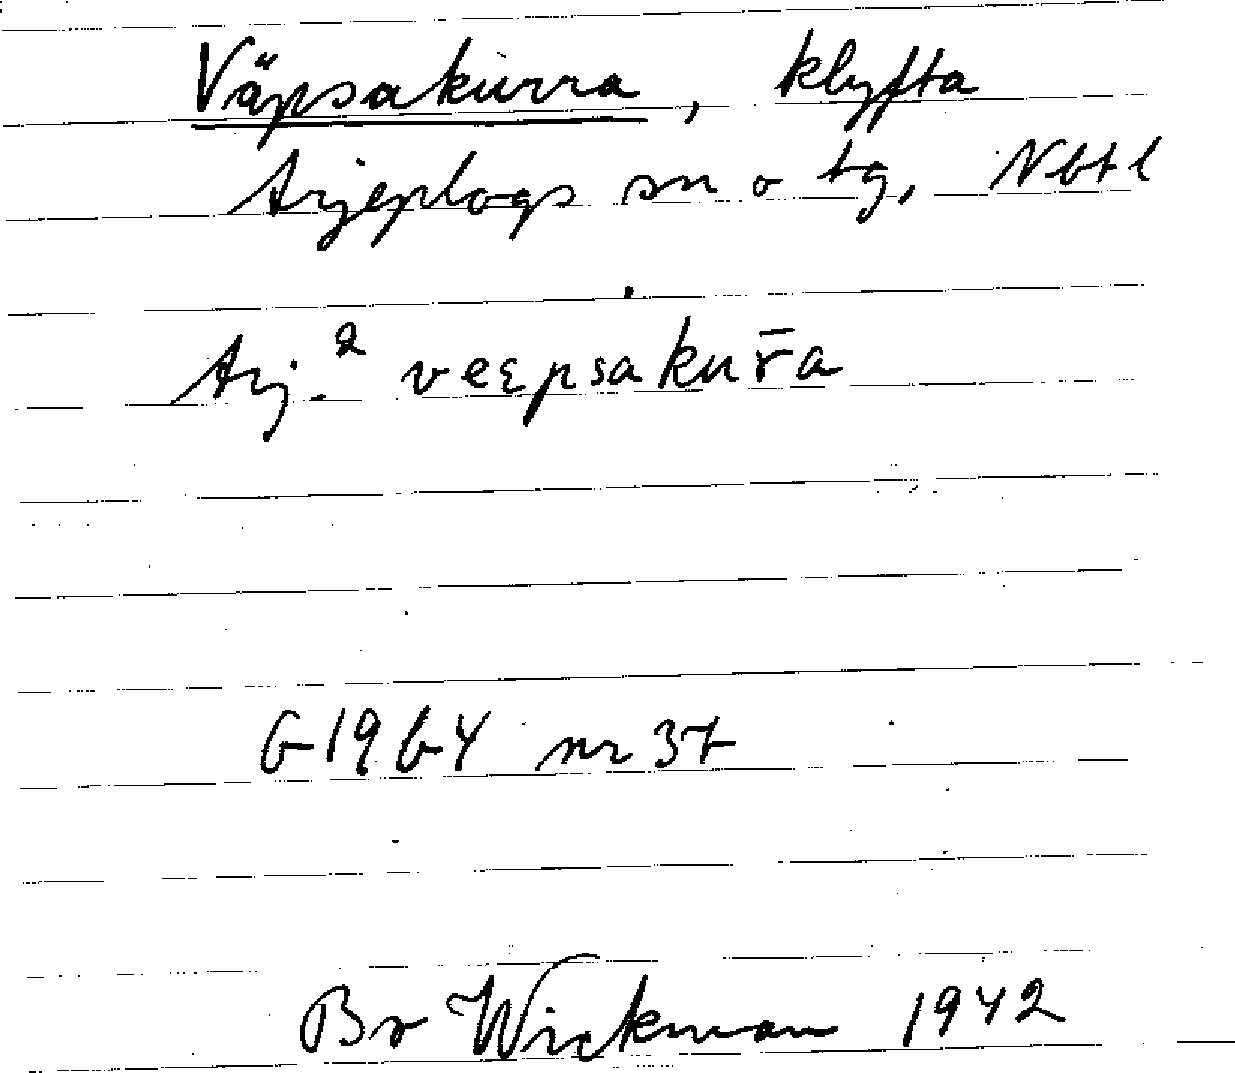 Väpsakurra, klyfta
Arjeplogs sn o tg, Nbtl
Arj.² veɛpsakur̄a
G1964 nr 37
Br Wickman 1942